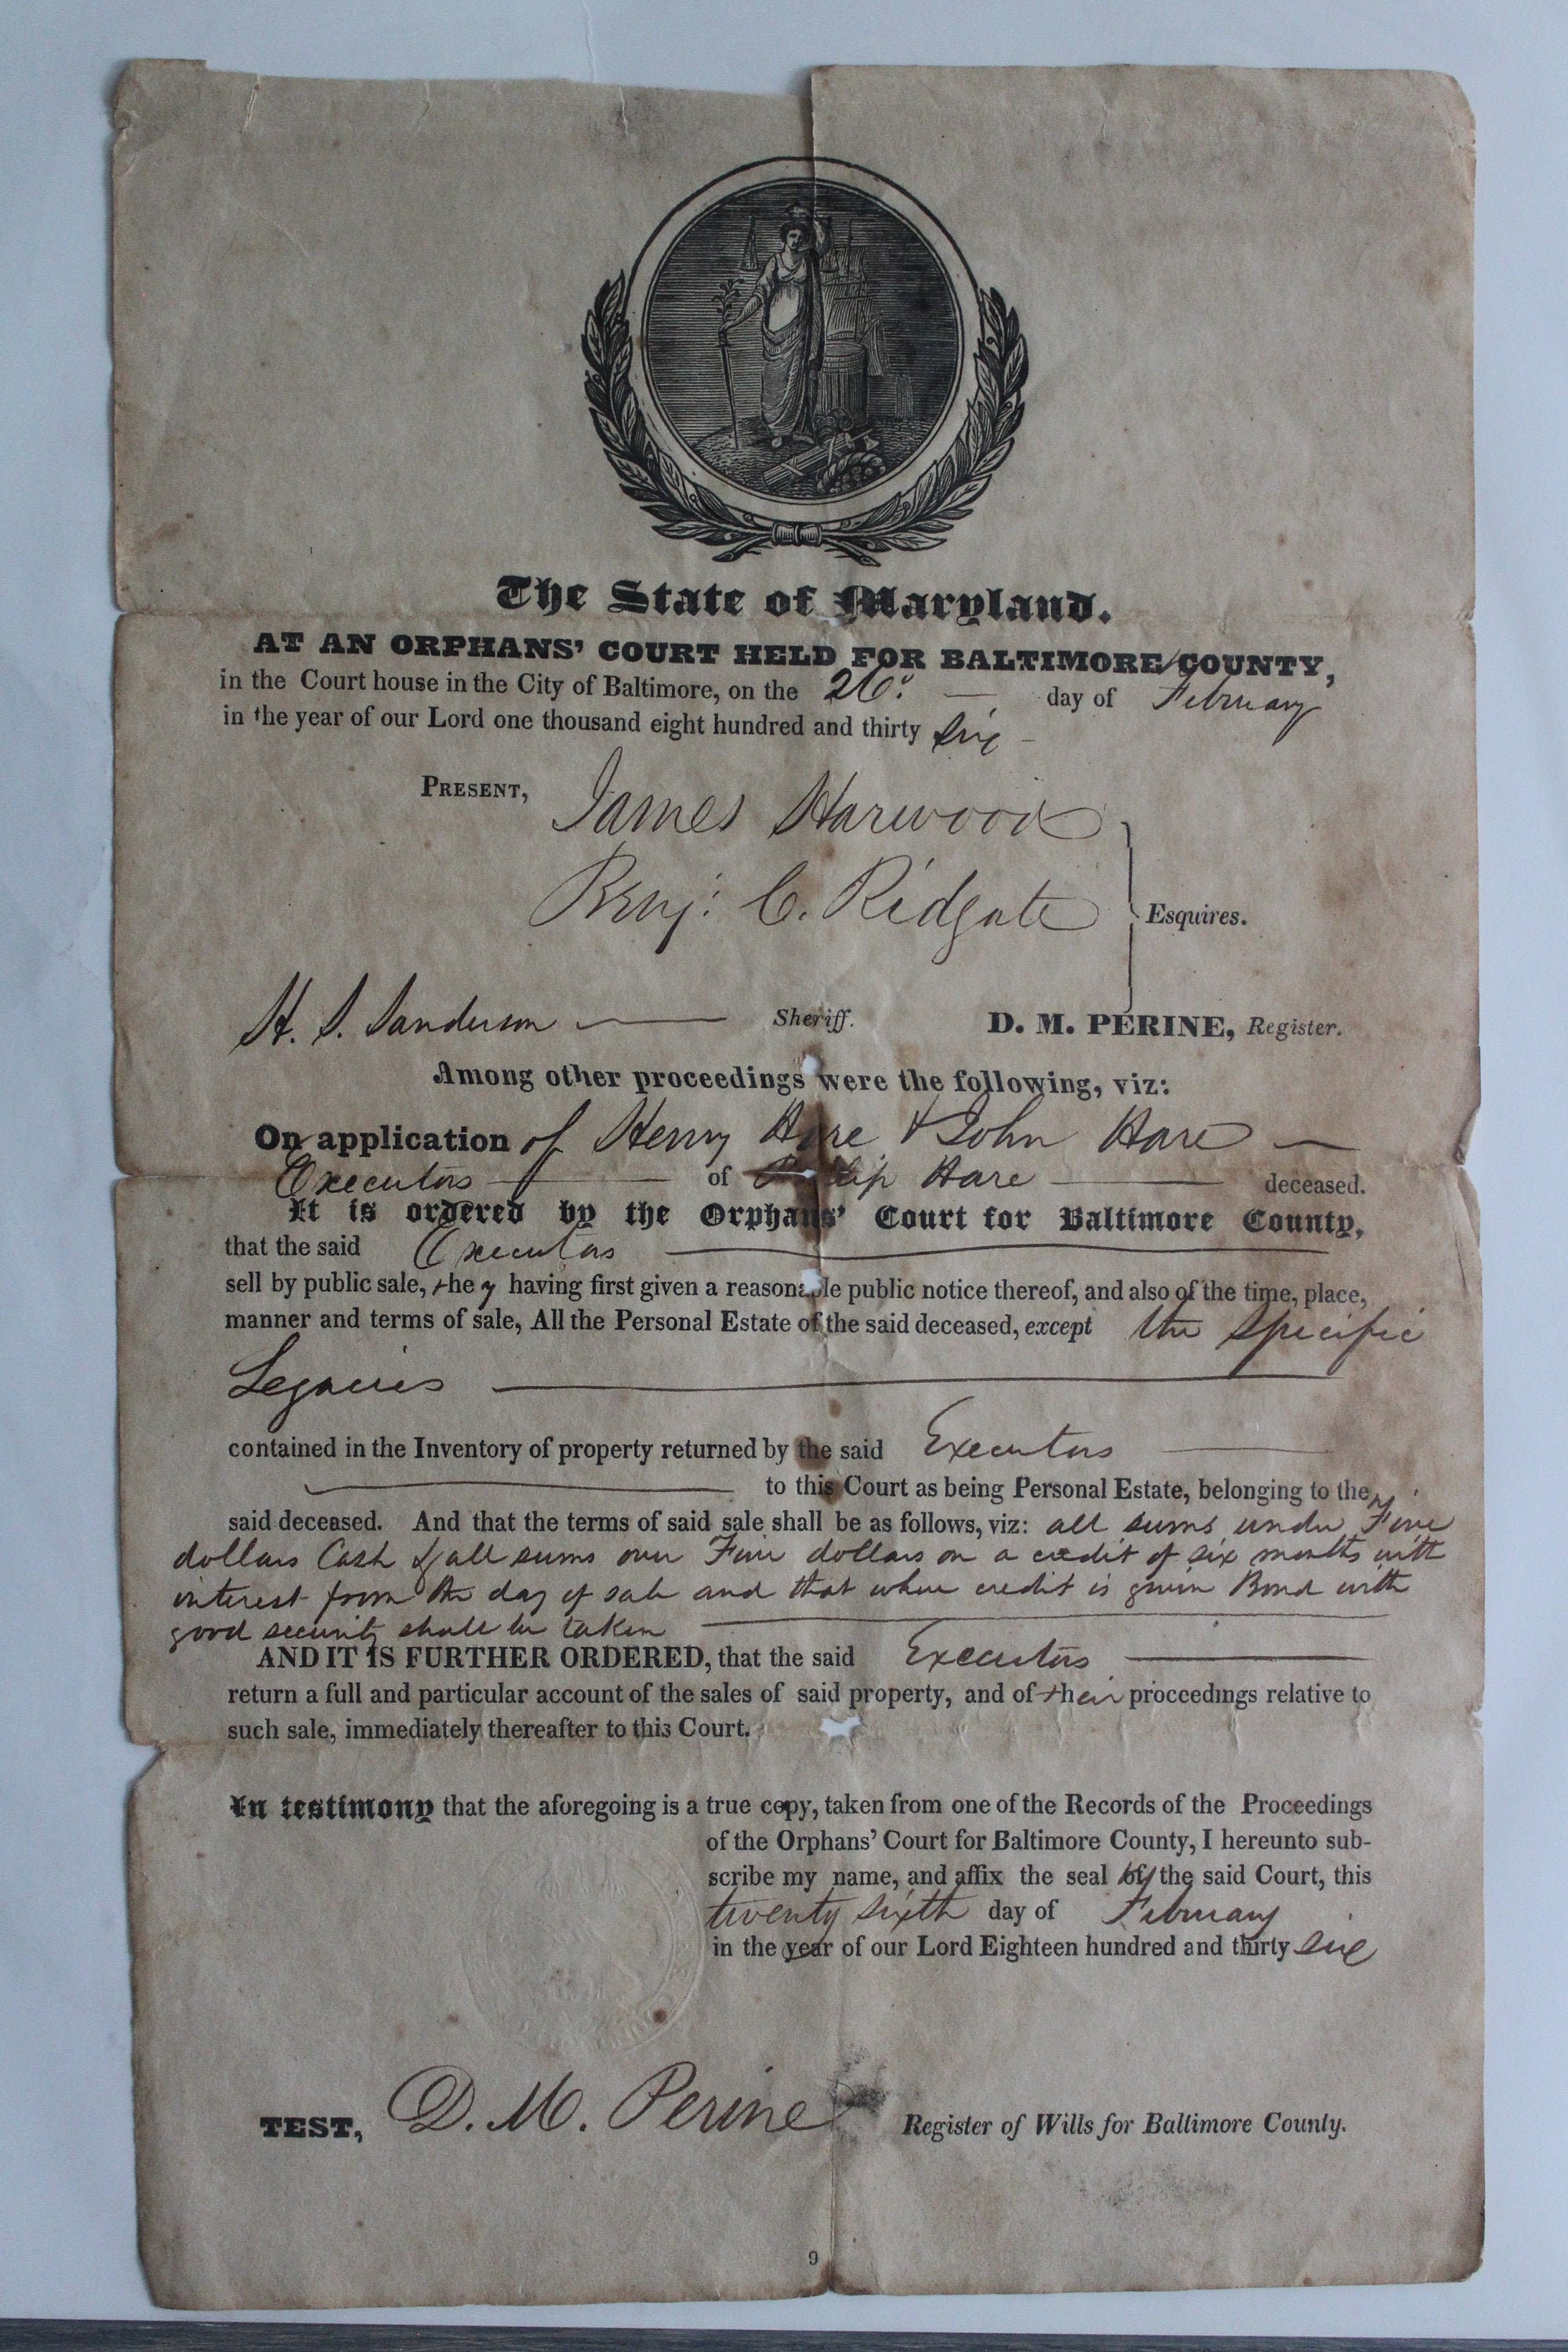 The State of Maryland.
AT AN ORPHANS' COURT HELD FOR BALTIMORE COUNTY,
in the Court house in the City of Baltimore, on the 26. — day of February
in the year of our Lord one thousand eight hundred and thirty six -
PRESENT, James Harwood
Benj: C. Ridgate Esquires.
H. S. Sanderson — Sheriff. D. M. PERINE, Register.
Among other proceedings were the following, viz:
On application of Henry Hare & John Hare —
Executors — of Hare — deceased.
It is ordered by the Orphans' Court for Baltimore County,
that the said Executors —
sell by public sale, they having first given a reasonable public notice thereof, and also of the time, place,
manner and terms of sale, All the Personal Estate of the said deceased, except the specific
Legacies —
contained in the Inventory of property returned by the said Executors —
— to this Court as being Personal Estate, belonging to the
said deceased. And that the terms of said sale shall be as follows, viz: all sums under Five
dollars Cash & all sums over Five dollars on a credit of six months with
interest from the day of sale and that when credit is given Bond with
good security shall be taken —
AND IT IS FURTHER ORDERED, that the said Executors —
return a full and particular account of the sales of said property, and of their proceedings relative to
such sale, immediately thereafter to this Court.
In testimony that the aforegoing is a true copy, taken from one of the Records of the Proceedings
of the Orphans' Court for Baltimore County, I hereunto sub-
scribe my name, and affix the seal of the said Court, this
twenty sixth day of February
in the year of our Lord Eighteen hundred and thirty six
TEST, D. M. Perine Register of Wills for Baltimore County.
9